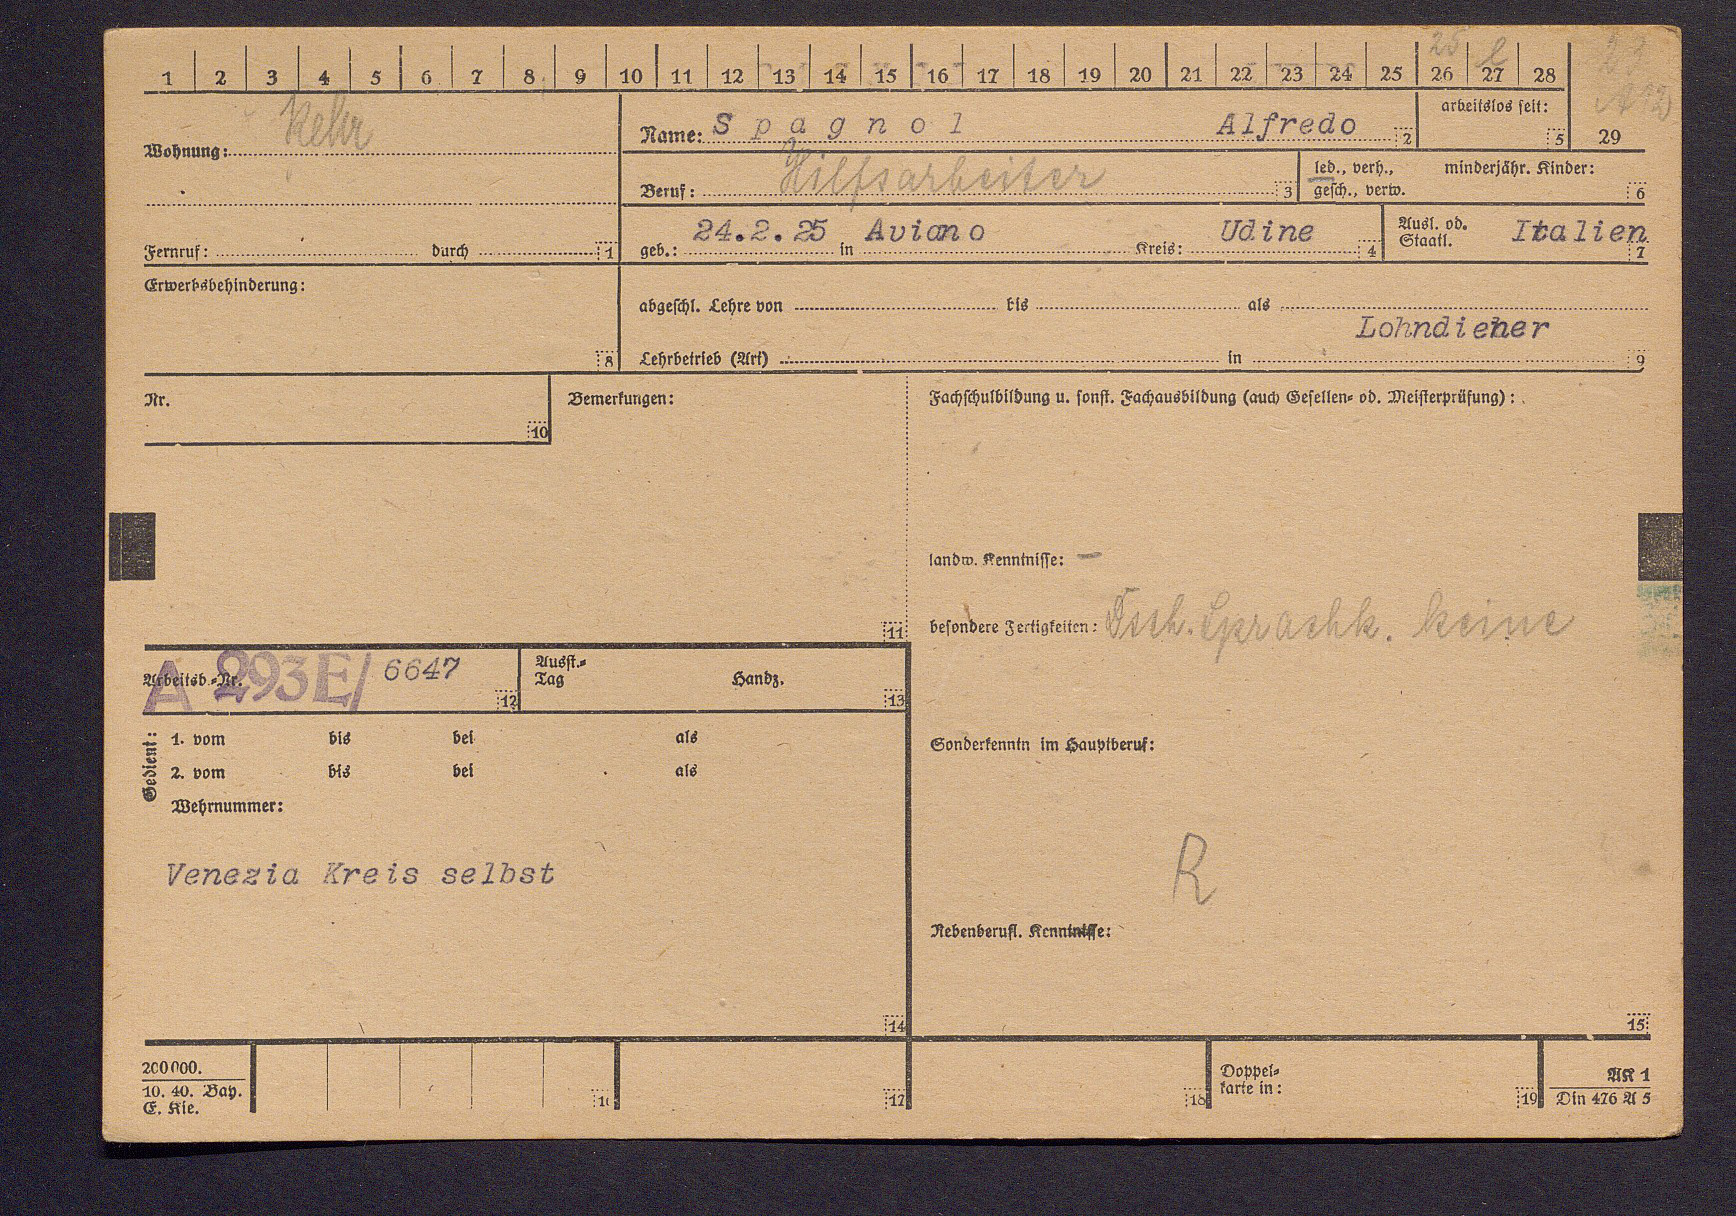 1 2 3 4 5 6 7 8 9 10 11 12 13 14 15 16 17 18 19 20 21 22 23 24 25 26 27 28
25
Wohnung: Kehr
Name: Spagnol Alfredo 2
arbeitslos seit: 5
29
Beruf: Hilfsarbeiter 3
led., verh., gesch., verw.
minderjähr. Kinder: 6
Fernruf: durch 1
geb.: 24.2.25 in Aviano Kreis: Udine 4
Ausl. od. Staatl. Italien 7
Erwerbsbehinderung: 8
abgeschl. Lehre von bis als
Lohndiener
Lehrbetrieb (Art) in 9
Nr. 10
Bemerkungen: 11
Fachschulbildung u. sonst. Fachausbildung (auch Gesellen- od. Meisterprüfung):
landw. Kenntnisse: –
besondere Fertigkeiten: Dtsch. Sprachk. keine
Arbeitsb.-Nr. A 293E/ 6647 12
Ausst.-Tag Handz. 13
Gedient:
1. vom bis bei als
2. vom bis bei als
Wehrnummer:
Sonderkenntn im Hauptberuf:
Venezia Kreis selbst
R
Nebenberufl. Kenntnisse:
14
15
200000.
10. 40. Bay.
E. Kie.
16 17 18
Doppel-
karte in: 19
AK 1
Din 476 A 5